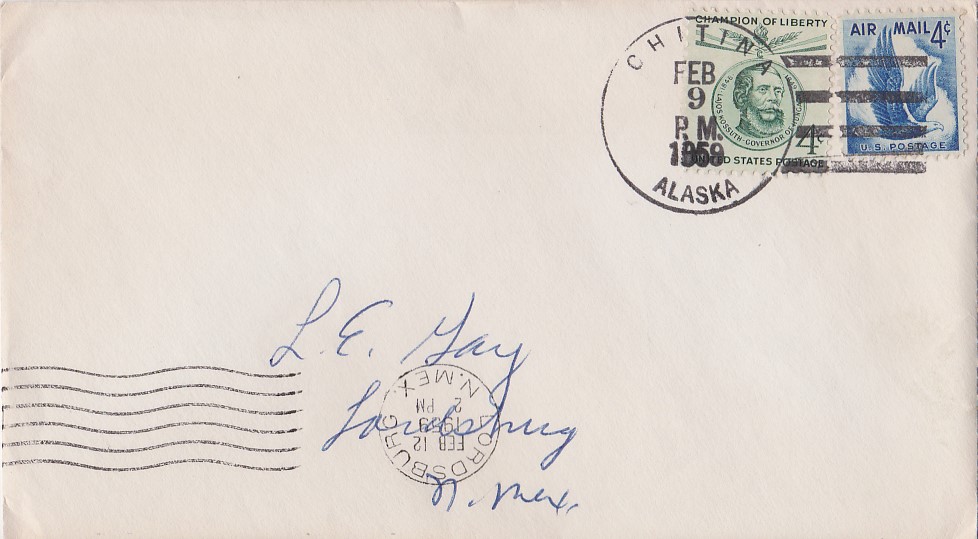 CHAMPION OF LIBERTY
1849-LAJOS KOSSUTH-GOVERNOR OF HUNGARY
4¢
UNITED STATES POSTAGE
AIR MAIL 4¢
U.S. POSTAGE
CHITINA
FEB
9
P.M.
1959
ALASKA
L. E. Gay
Lordsburg
N. Mex.
LORDSBURG
FEB 12
1959
2 PM
N. MEX.